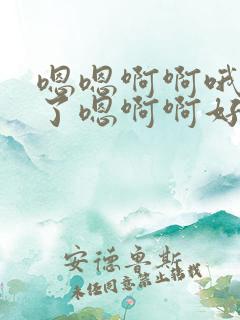 嗯嗯啊啊哦
了嗯啊啊好
安德鲁斯
未经同意禁止转载